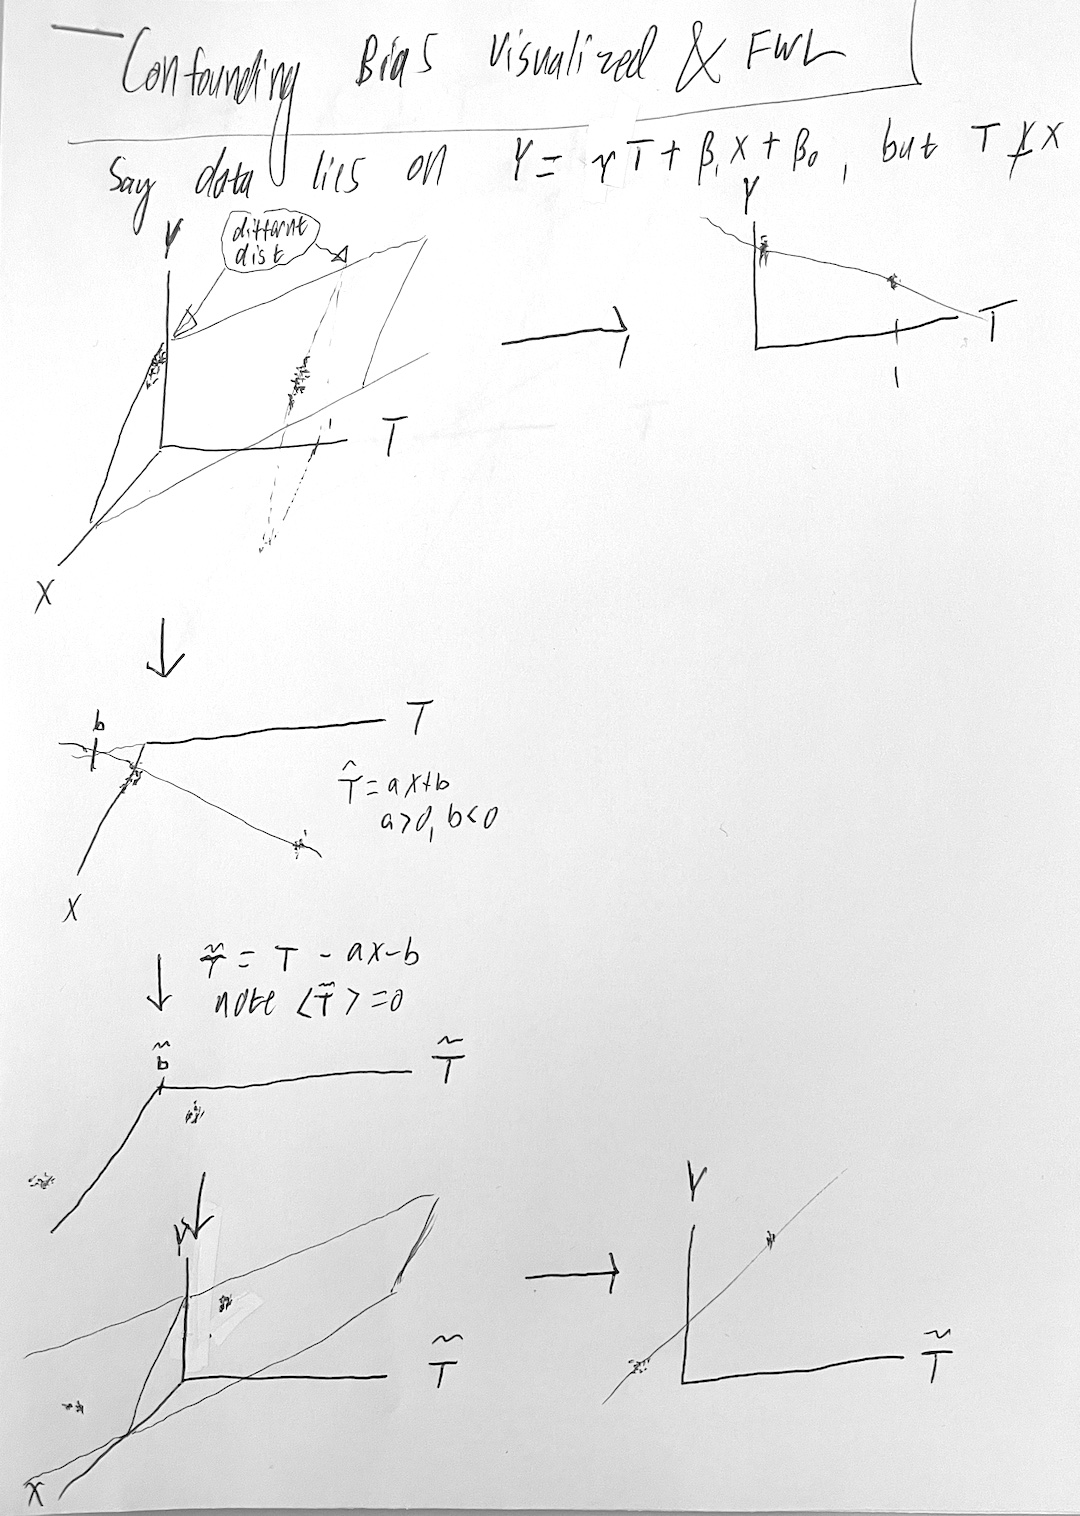 Confounding Bias Visualized & FWL
Say data lies on Y = γT + β₁X + β₀, but T ⊥̸ X
Y
different
dist
T
1
X
Y
T
1
b
T
T̂ = aX+b
a>0, b<0
X
T̃ = T - aX - b
note <T̃> = 0
b̃
T̃
Y
T̃
X
Y
T̃